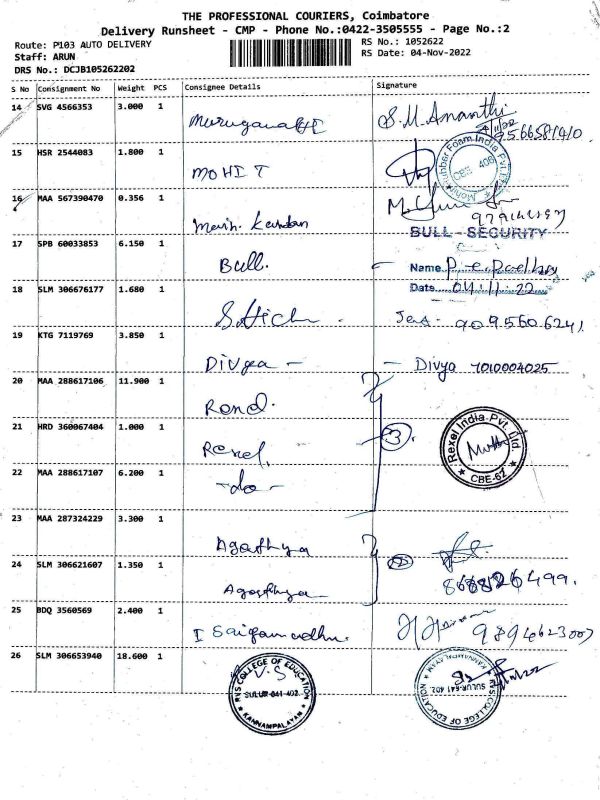 THE PROFESSIONAL COURIERS, Coimbatore
Delivery Runsheet - CMP - Phone No.:0422-3505555 - Page No.:2
Route: P103 AUTO DELIVERY
Staff: ARUN
DRS No.: DCJB105262202
RS No.: 1052622
RS Date: 04-Nov-2022
S No Consignment No Weight PCS Consignee Details Signature
14 SVG 4566353 3.000 1 S.M.Ananthi
9566581410
15 HSR 2544083 1.800 1 MOHIT
Rubber Foam India Pvt. CBE 406
16 MAA 567390470 0.356 1
BULL - SECURITY
17 SPB 60033853 6.150 1 Bull.
Name
Date 04.11.22
18 SLM 306676177 1.680 1 9095606241
19 KTG 7119769 3.850 1 Divya - - Divya 7010004025
20 MAA 288617106 11.900 1
21 HRD 360067404 1.000 1 Rexel. 3
Rexel India Pvt. Ltd. CBE-62
22 MAA 288617107 6.200 1 -do-
23 MAA 287324229 3.300 1 Agathya
24 SLM 306621607 1.350 1 Agathya
25 BDQ 3560569 2.400 1 9894623007
26 SLM 306653940 18.600 1 V.S
RVS COLLEGE OF EDUCATION SULUR-641 402. KANNAMPALAYAM
RVS COLLEGE OF EDUCATION SULUR-641 402. KANNAMPALAYAM